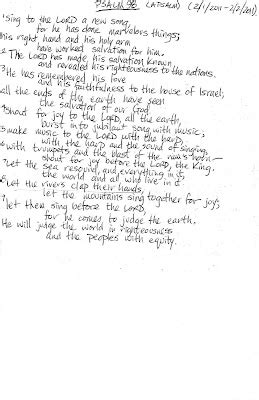 PSALM 98 (A PSALM) (2/1/2011-2/2/2011)
¹Sing to the LORD a new song,
for he has done marvelous things;
his right hand and his holy arm
have worked salvation for him.
²The LORD has made his salvation known
and revealed his righteousness to the nations.
³He has remembered his love
and his faithfulness to the house of Israel;
all the ends of the earth have seen
the salvation of our God.
⁴Shout for joy to the LORD, all the earth,
burst into jubilant song with music;
⁵make music to the LORD with the harp,
with the harp and the sound of singing,
⁶with trumpets and the blast of the ram's horn—
shout for joy before the LORD, the King.
⁷Let the sea resound, and everything in it,
the world and all who live in it.
⁸Let the rivers clap their hands,
let the mountains sing together for joy;
⁹let them sing before the LORD,
for he comes to judge the earth.
He will judge the world in righteousness
and the peoples with equity.